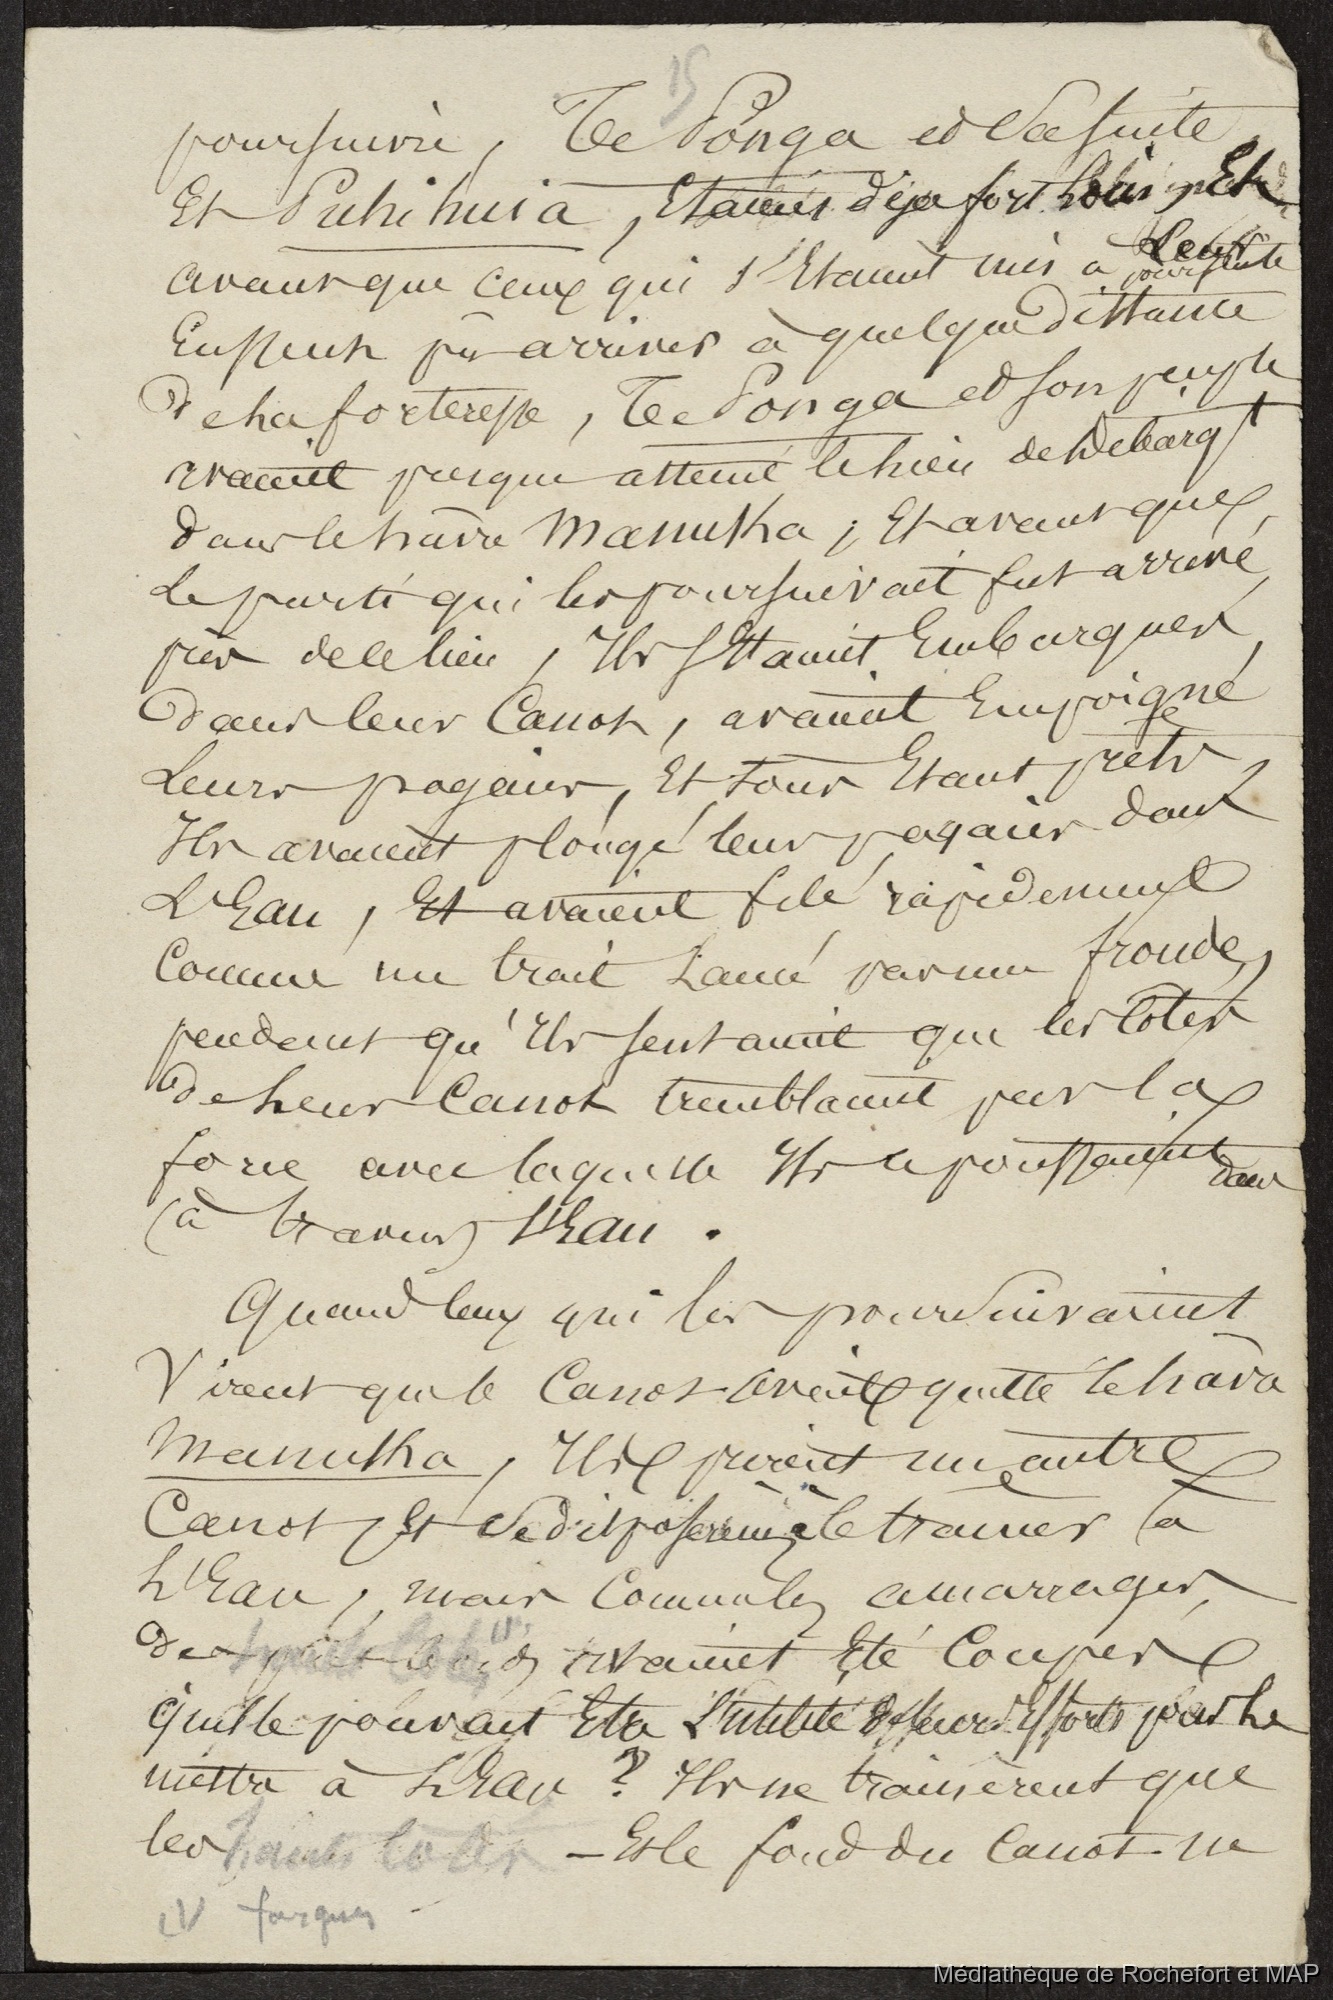 15
poursuivre, Te Ponga et sa suite
Et Puhihuia, Etaient déja fort loin, Et
avant que ceux qui s'Etaient mis a leur poursuite
Eussent pû arriver à quelque distance
de la forteresse, Te Ponga et son peuple
avaient presque atteint le lieu de debarqt
dans le havre Manuka ; Et avant que
le parti qui les poursuivait fut arrivé
près de ce lieu, Ils s'Etaient Embarqués
dans leur Canot, avaient Empoigné
leurs pagaies, Et tous Etant prets
Ils avaient plongé leurs pagaies dans
L'Eau, Et avaient filé rapidement
Comme un trait Lancé par une fronde,
pendant qu'Ils sentaient que les côtés
de leur Canot tremblaient par la
force avec laquelle Ils le poussaient dans
(à travers) l'Eau.
Quand ceux qui les poursuivaient
Virent que le Canot avait quitté le havre
Manuka, Ils prirent un autre
Canot Et se disposèrent à le trainer à
L'Eau, mais Comme les amarrages
des avaient Eté Coupés
quelle pouvait Etre L'utilité de leurs Efforts pour le
mettre à L'Eau ? Ils ne trainèrent que
les hauts côtés – Et le fond du Canot ne
fargues
Médiathèque de Rochefort et MAP